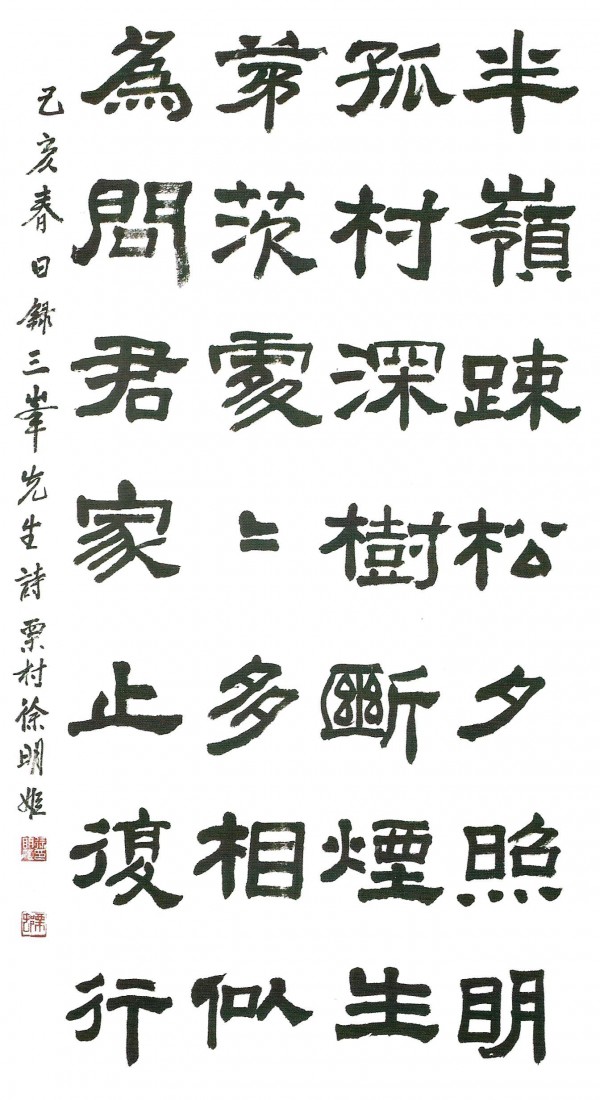 半嶺踈松夕照明
孤村深樹斷煙生
茅茨處〻多相似
為問君家止復行
己亥春日錄三峯先生詩栗村徐明姬